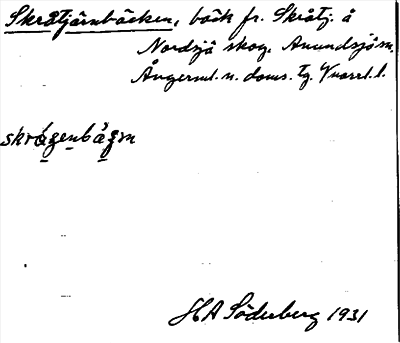 Skråtjärnbäcken, bäck fr. Skråtj. å
Nordsjö skog. Anundsjö sn.
Ångerml. n. doms. tg.
skrágenbä̀ʒm
H A Söderberg 1931